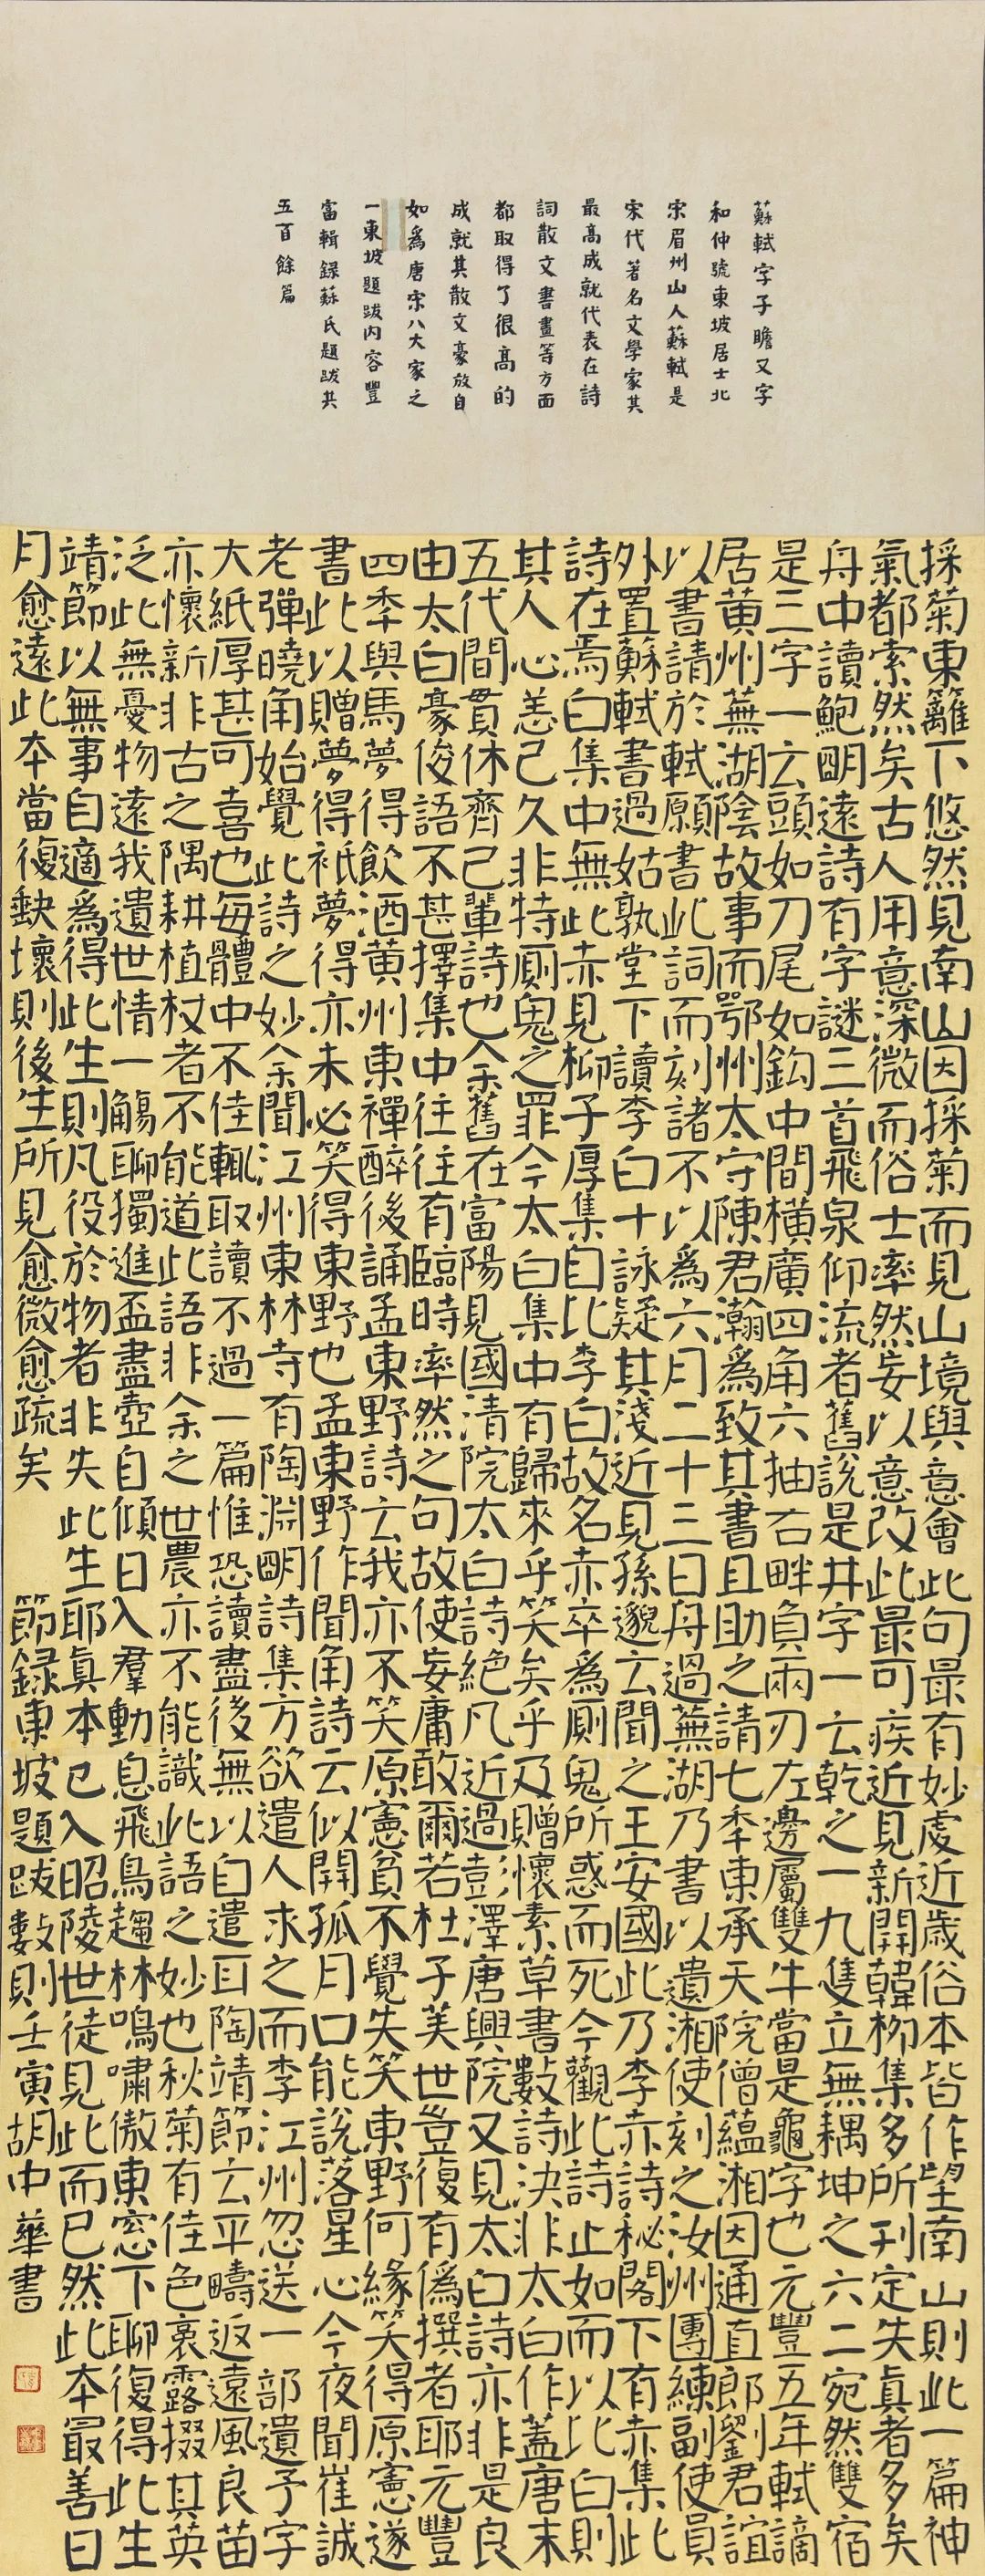 蘇軾字子瞻又字
和仲號東坡居士北
宋眉州山人蘇軾是
宋代著名文學家其
最高成就代表在詩
詞散文書畫等方面
都取得了很高的
成就其散文豪放自
如爲唐宋八大家之
一東坡題跋内容豐
富輯録蘇氏題跋共
五百餘篇
採菊東籬下悠然見南山因採菊而見山境與意會此句最有妙處近歲俗本皆作望南山則此一篇神
氣都索然矣古人用意深微而俗士率然妄以意改此最可疾近見新開韓柳集多所刊定失真者多矣
舟中讀鮑明遠詩有字謎三首飛泉仰流者舊說是井字一云乾之一九隻立無耦坤之六二宛然雙宿
是三字一云頭如刀尾如鈎中間橫廣四角六抽右畔負兩刃左邊屬雙牛當是龜字也元豐五年軾謫
居黄州蕪湖陰故事而鄂州太守陳君瀚爲致其書且助之請七年東承天院僧藴湘因通直郎劉君誼
以書請於軾願書此詞而刻諸不以爲六月二十三日舟過蕪湖乃書以遺湘使刻之汝州團練副使員
外置蘇軾書過姑孰堂下讀李白十詠疑其淺近見孫邈云聞之王安國此乃李赤詩秘閣下有赤集此
詩在焉白集中無此赤見柳子厚集自比李白故名赤卒爲厠鬼所惑而死今觀此詩止如而以比白則
其人心恙已久非特厠鬼之罪今太白集中有歸來乎笑矣乎及贈懷素草書數詩決非太白作蓋唐末
五代間貫休齊己輩詩也余舊在富陽見國清院太白詩絕凡近過彭澤唐興院又見太白詩亦非是良
由太白豪俊語不甚擇集中往往有臨時率然之句故使妄庸敢爾若杜子美世豈復有偽撰者耶元豐
四年與馬夢得飲酒黄州東禪醉後誦孟東野詩云我亦不笑原憲貧不覺失笑東野何緣笑得原憲遂
書此以贈夢得衹夢得亦未必笑得東野也孟東野作聞角詩云似開孤月口能說落星心今夜聞崔誠
老彈曉角始覺此詩之妙余聞江州東林寺有陶淵明詩集方欲遣人求之而李江州忽送一部遺予字
大紙厚甚可喜也每體中不佳輒取讀不過一篇惟恐讀盡後無以自遣耳陶靖節云平疇返遠風良苗
亦懷新非古之隅耕植杖者不能道此語非余之世農亦不能識此語之妙也秋菊有佳色裛露掇其英
泛此無憂物遠我遺世情一觴聊獨進盃盡壺自傾日入羣動息飛鳥趨林鳴嘯傲東窓下聊復得此生
靖節以無事自適爲得此生則凡役於物者非失此生耶真本已入昭陵世徒見此而已然此本最善日
月愈遠此本當復缺壞則後生所見愈微愈疏矣 節録東坡題跋數則壬寅胡中華書